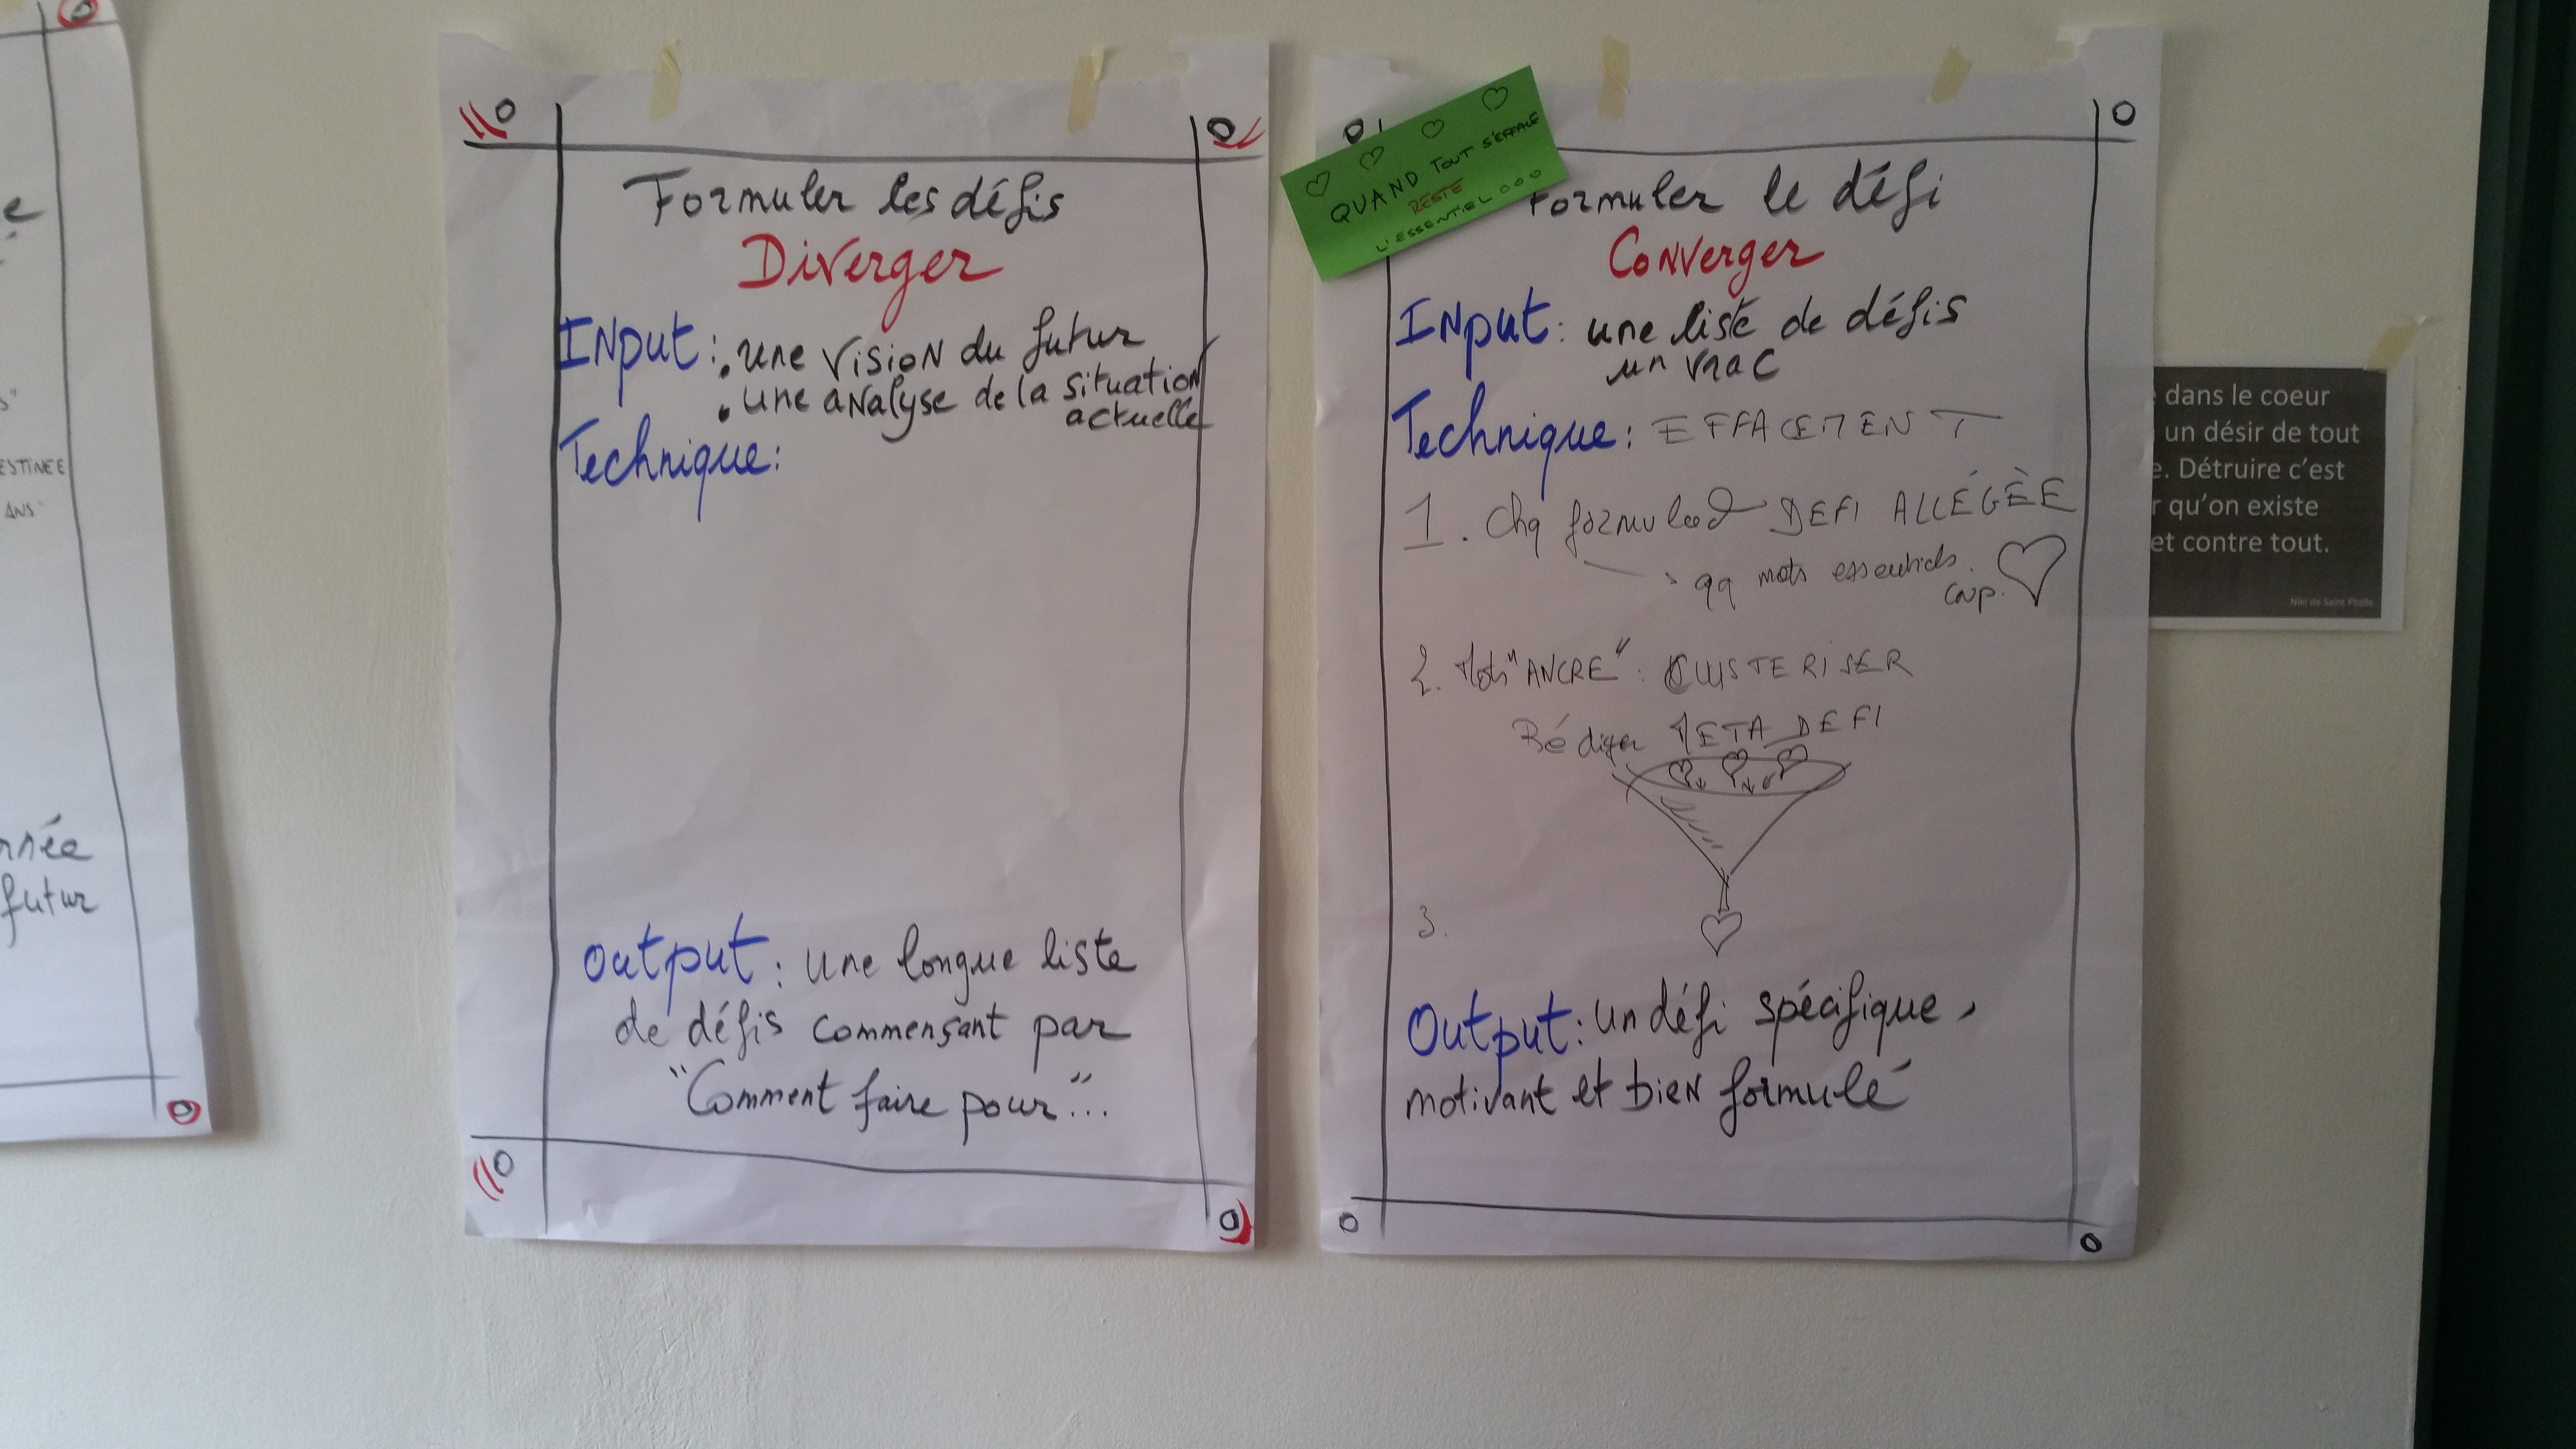 e
s"
ESTINEE
ANS"
rnée
futur
Formuler les défis
Diverger
Input: . une vision du futur
. une analyse de la situation
actuelle
Technique:
Output: une longue liste
de défis commençant par
"Comment faire pour"...
QUAND TOUT S'EFFACE
RESTE
L'ESSENTIEL...
Formuler le défi
Converger
Input: une liste de défis
un vrac
Technique: EFFACEMENT
1. Chq DEFI ALLÉGÈE
qq mots essentiels.
coup.
2. Mots "ANCRE": CLUSTERISER
Rédiger META DEFI
3.
Output: un défi spécifique,
motivant et bien formulé
dans le coeur
un désir de tout
e. Détruire c'est
r qu'on existe
et contre tout.
Niki de Saint Phalle